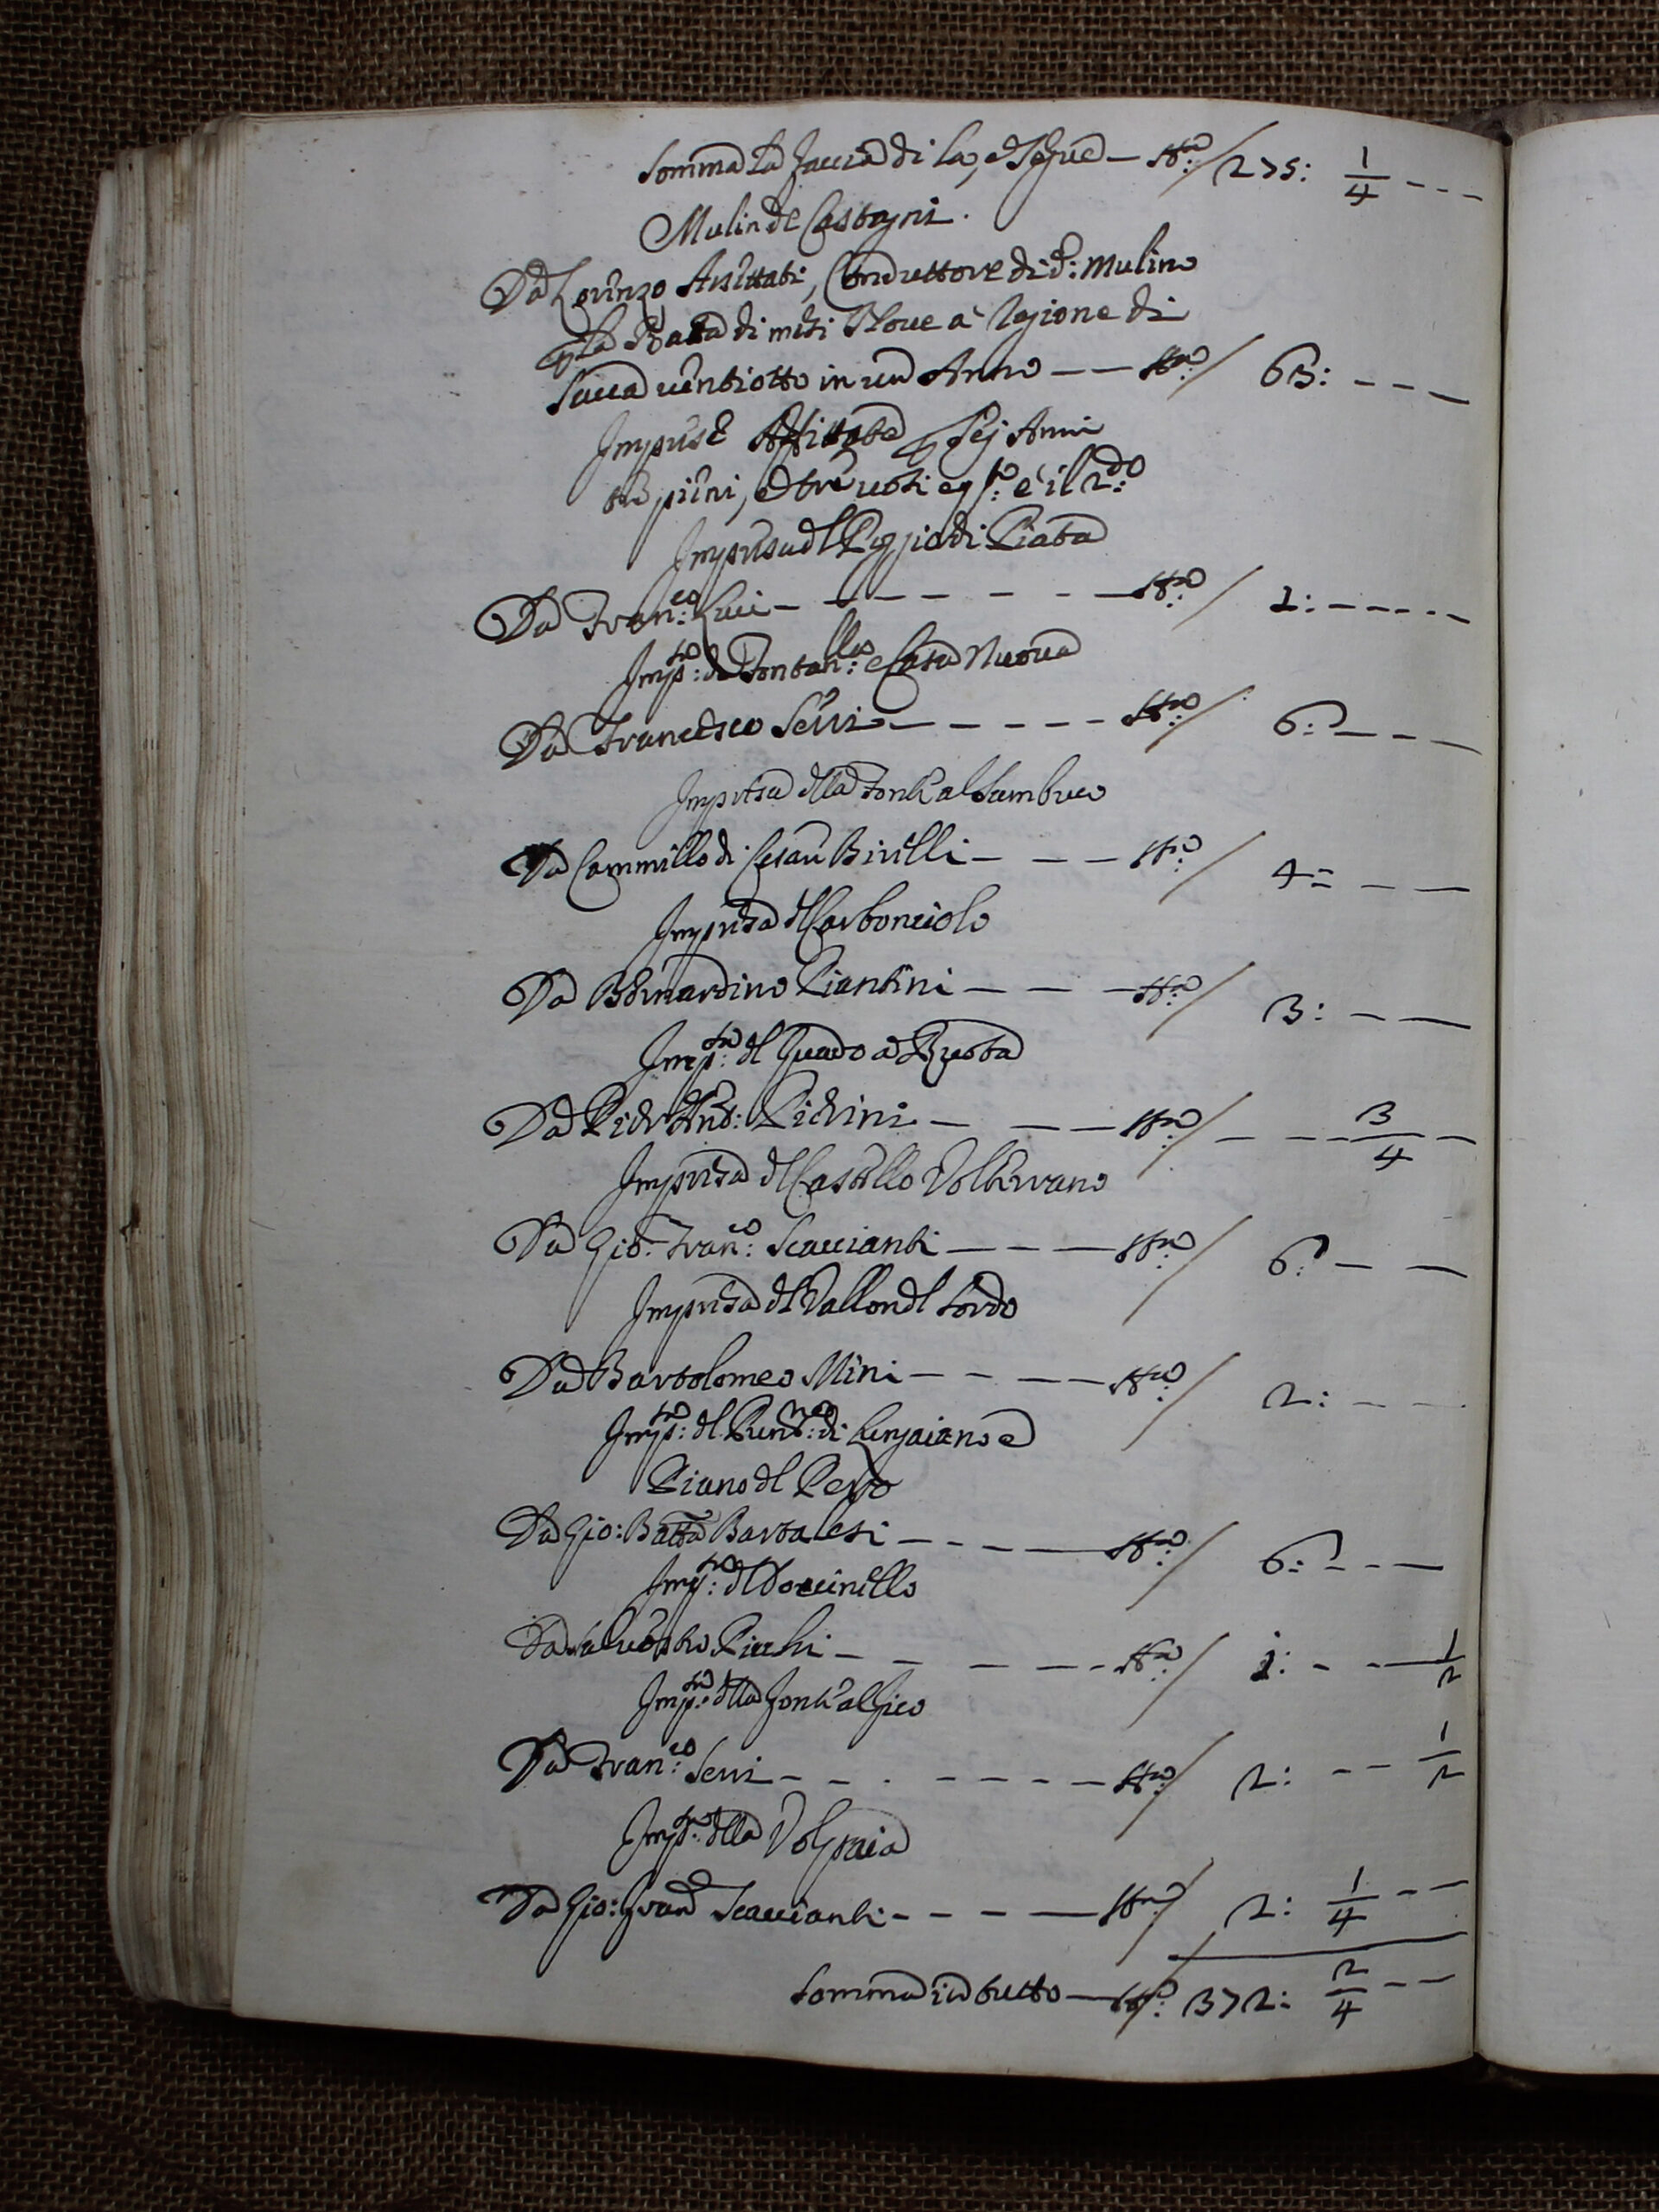 Somma la faccia di la, e segue — Sa: 275: 1/4 ---
Mulin de Castagni.
Da Lorenzo Conduttore di d:o Mulino
p la Rata di mesi Nove a ragione di
Sacca ventiotto in un Anno — — Sa: 63: - - -
Imprese Affittate p sej Anni
tre pieni, e tre voti e q.sto è il 2:do
Impresa del Poggio di Piata
Da Fran:co Luci - - - - - - - Sa: 1: - - - - -
Imp:sa da Fontan:lle e Casa Nuova
Da Francesco Serri — — — — — Sa: 6: - - -
Impresa della Fonte al Sambuco
Da Cammillo di Cesare Birelli - — — Sa: 4: — —
Impresa del Carbonciolo
Da Bernardino Piantini — — — Sa: 3: — —
Imp:sa del Guado a
Da Pier Ant: Pierini — — — Sa: — - - 3/4 —
Impresa del Castello Volterrano
Da Gio: Fran:co Scaccianti — — — Sa: 6: — —
Impresa del Vallon del Sordo
Da Bartolomeo Mini — - — — Sa: 2: - -
Imp:sa del di e
Piano del Pero
Da Gio: Batta Bartalesi - - - — Sa: 6: - - —
Imp:sa del Doccinello
Da Salvestro Picchi — — — - Sa: 1: - - 1/2
Imp:sa della Fonte al Fico
Da Fran:co Serri - - - - - - - Sa: 2: - - 1/2
Imp:sa della Volpaia
Da Gio: Fran:co Scaccianti - - - — Sa: 2: 1/4 - -
Somma in tutto — Sa: 372: 2/4 - -